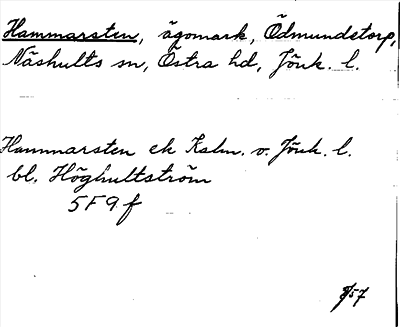 Hammarsten, ägomark, Ödmundetorp,
Näshults sn, Östra hd, Jönk. l.
Hammarsten ek Kalm. v. Jönk. l.
bl. Höghultström
5F9f
57